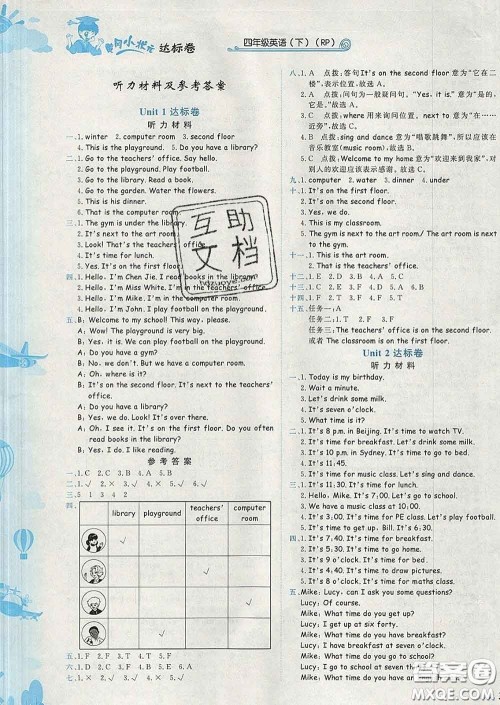 黄冈小状元 达标卷
四年级英语(下)(RP)
听力材料及参考答案
Unit 1 达标卷
听力材料
一、1. winter 2. computer room 3. second floor
4. This is the playground. 5. Do you have a library?
二、1. Go to the teachers' office. Say hello.
2. Go to the playground. Play football.
3. Go to the library. Read a book.
4. Go to the garden. Water the flowers.
5. This is his dinner.
6. This is the computer room.
三、1. The gym is under the library.
2. It's next to the art room.
3. Look! That's the teachers' office.
4. It's time for lunch.
5. Yes. It's on the first floor.
四、1. Hello, I'm Chen Jie. I read books in the library.
2. Hello, I'm Miss White. I'm in the teachers' office.
3. Hello, I'm Mike. I'm in the computer room.
4. Hello, I'm John. I play football on the playground.
五、B: Welcome to my school! This way, please.
A: Wow! The playground is very big.
B: Yes, it is. We can play football on the playground.
A: Do you have a gym?
B: No, we don't. But we have a computer room.
A: Oh, where is it?
B: It's on the second floor. It's next to the teachers'
office.
A: Do you have a library?
B: Yes. It's on the first floor.
A: Oh, I see. It's beautiful. Do you often
read books in the library?
B: Yes.
参考答案
一、1. C 2. B 3. A 4. A 5. B
二、1. √ 2. × 3. √ 4. √ 5. × 6. √
三、5 1 3 4 2
四、
library playground teachers' office computer room
√
√
√
√
五、1. F 2. F 3. T 4. T 5. F
六、1. D 2. A 3. C 4. B
七、1. × 2. √ 3. × 4. √ 5. ×
八、1. A 点拨:答句It's on the second floor 意为“它在二
楼”,表示位置,故选A。
2. A 点拨:问句为一般疑问句,“Yes, it is.”意为
“是的,它是。”故选A。
3. B 点拨:where 用来询问位置,next to 意为“在……
近旁”,故选B。
4. B 点拨:sing and dance 意为“唱歌跳舞”,所以应在
音乐教室(music room),故选B。
5. C 点拨:Welcome to my home 意为“欢迎来到我家”,对
别人的欢迎应该表示感谢,故选C。
九、1. computer 2. water 3. dinner 4. under
十、1. It's on the first floor.
2. It's on the second floor.
3. Yes, it is.
4. This is my classroom.
5. The gym is next to the art room/ The art room is
next to the gym.
十一、1. This is the art room.
2. It's on the first floor.
十二、任务一:1. C 2. D 3. A 4. B
任务二:1. T 2. F 3. T 4. F
任务三:The teachers' office is on the second floor.
或者 The classroom is on the first floor.
Unit 2 达标卷
听力材料
一、1. Today is my birthday.
2. Wait a minute.
3. Let's drink some milk.
4. It's seven o'clock.
5. Let's drink some milk.
二、1. It's 8 p.m. in Beijing. It's time to watch TV.
2. It's time for breakfast. Let's drink some milk.
3. It's 10 p.m. in Sydney. It's time to go to bed.
4. It's 11:45.
5. It's time for music class. Let's sing and dance.
三、1. It's time for English class.
2. Hello, Mike. It's 7:00. It's time to go to school.
3. It's 5 o'clock. It's time to go home.
4. It's 3:00. It's time for PE class. Let's play football.
5. It's 6:00. It's time for dinner.
四、1. It's 7:40. It's time for breakfast.
2. It's 12:30. It's time for lunch.
3. It's 6:30. It's time for dinner.
4. It's 2:20. It's time to draw pictures.
5. It's 8:10. It's time for maths class.
五、Mike: Lucy, can I ask you some questions?
Lucy: Of course.
Mike: What time do you get up?
Lucy: I get up at six forty.
Mike: What time do you have breakfast?
Lucy: I have breakfast at seven o'clock.
Mike: What time do you go to school?
Lucy: I go to school at seven thirty.
互助文档
hdzuoye.com
答案圈
MXQE.COM